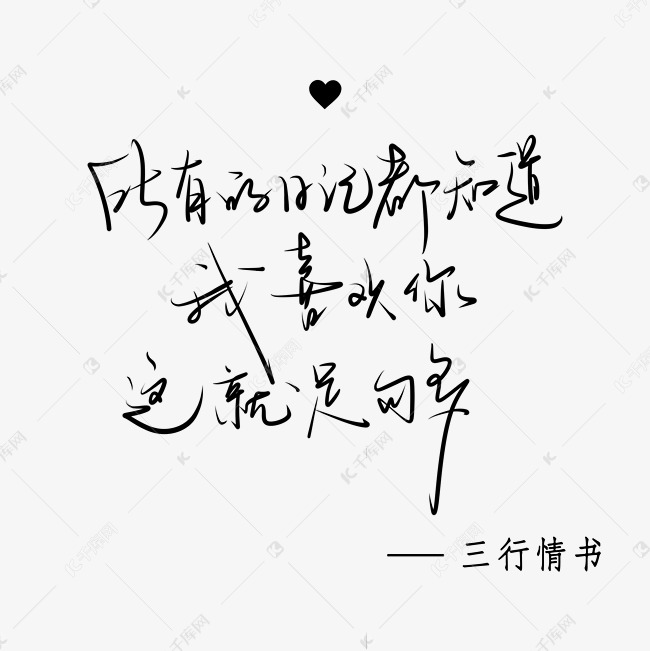 所有的日记都知道
我喜欢你
这就足够
—— 三行情书
千库网